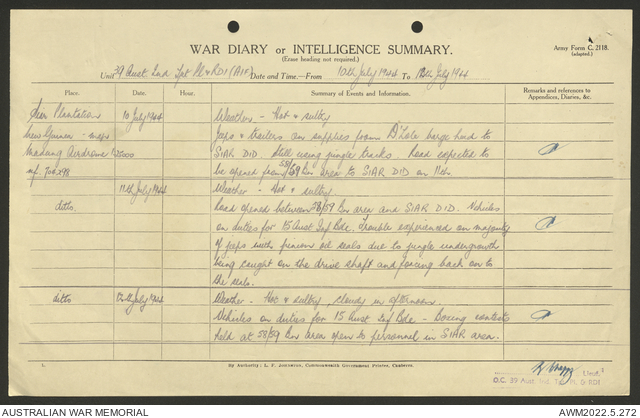 WAR DIARY or INTELLIGENCE SUMMARY.
(Erase heading not required.)
Army Form C. 2118.
(adapted.)
Unit 39 Aust Ind Tpt Pl & RDI (AIF) Date and Time.—From 10th July 1944 To 12th July 1944
Place. Date. Hour. Summary of Events and Information. Remarks and references to Appendices, Diaries, &c.
Siar Plantation 10 July 1944 Weather - Hot & sultry
New Guinea - Jeeps & trailers on supplies from barge head to
Madang Airdrome SIAR DID. Still using jungle tracks. Road expected to
be opened from 58/59 Bn area to SIAR DID on 11th.
11th July 1944 Weather - Hot & sultry.
ditto. Road opened between 58/59 Bn area and SIAR DID. Vehicles
on duties for 15 Aust Inf Bde. Trouble experienced on majority
of jeeps with pinion oil seals due to jungle undergrowth
being caught on the drive shaft and forcing back on to
the seals.
ditto 12th July 1944 Weather - Hot & sultry, cloudy in afternoon.
Vehicles on duties for 15 Aust Inf Bde - Boxing contests
held at 58/59 Bn area open to personnel in SIAR area.
Lieut.
By Authority: L. F. Johnston, Commonwealth Government Printer, Canberra.
O.C. 39 Aust. Ind.
AUSTRALIAN WAR MEMORIAL
AWM2022.5.272